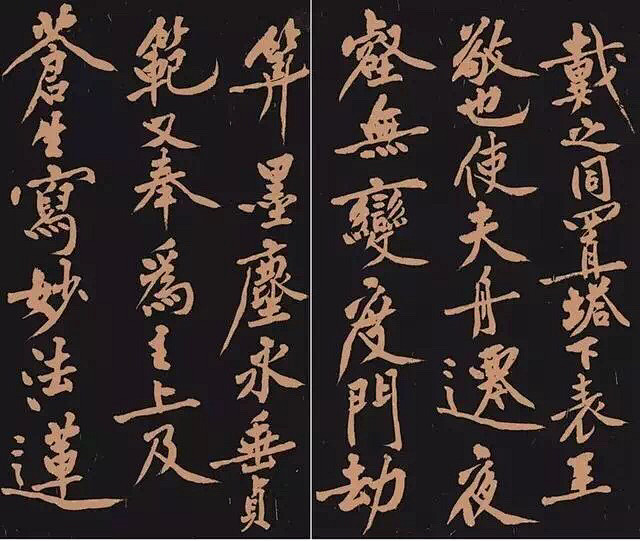 戴之同置塔下表至
敬也使夫舟遷夜
壑無變度門劫
算墨塵永垂貞
範又奉爲主上及
蒼生寫妙法蓮